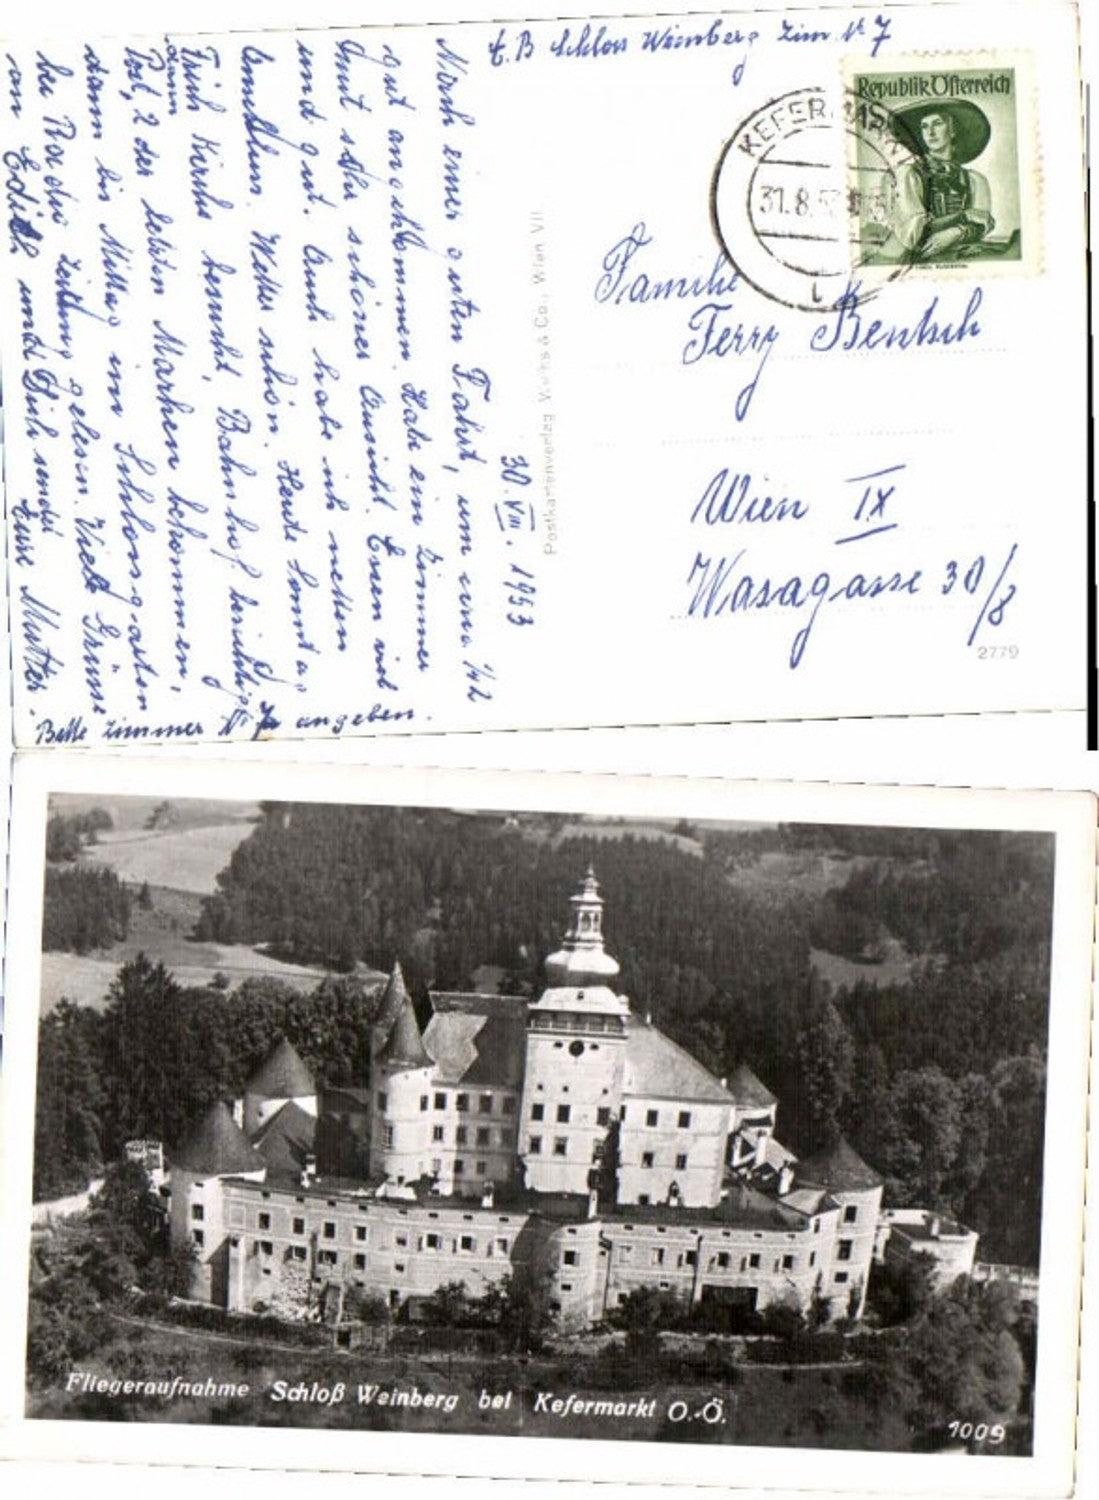 E.B Schloss Weinberg Zim. N. 7
Republik Österreich
KEFERMARKT
31.8.53
30. VIII. 1953
Nach einer guten Fahrt, um ca. 1/2
gut angekommen. Habe ein Zimmer
mit sehr schöner Aussicht. Essen viel
und gut. Auch habe ich netten
Anschluss. Wetter schön. Heute Sonntag
früh Kirche besucht, Bahnhof besichtigt
dann
Post, 2 der letzten Marken bekommen,
dann bis Mittag im Schlossgarten
bei Radio Zeitung gelesen. Viele Grüsse
an Edith und Dich
Eure Mutter.
Bitte Zimmer N. 7 angeben.
Postkartenverlag & Co., Wien VII.
Familie
Ferry Bentsch
Wien IX
Wasagasse 30/8
2779
Fliegeraufnahme Schloß Weinberg bei Kefermarkt O.-Ö.
1009